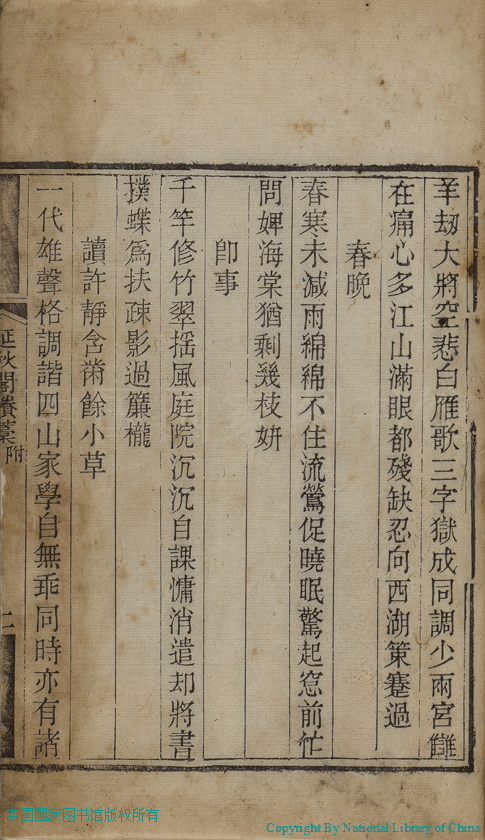 羊刼大將空悲白雁歌三字獄成同調少兩宮讎
在痛心多江山滿眼都殘缺忍向西湖策蹇過
春晚
春寒未減雨綿綿不住流鶯促曉眠驚起窓前忙
問婢海棠猶剩幾枝妍
卽事
千竿修竹翠揺風庭院沉沉自課慵消遣却將書
撲蝶爲扶疎影過簾櫳
讀許靜含術餘小草
一代雄聲格調諧四山家學自無乖同時亦有諸
秋閣賸藁附
中国国家图书馆版权所有
Copyright By National Library of China